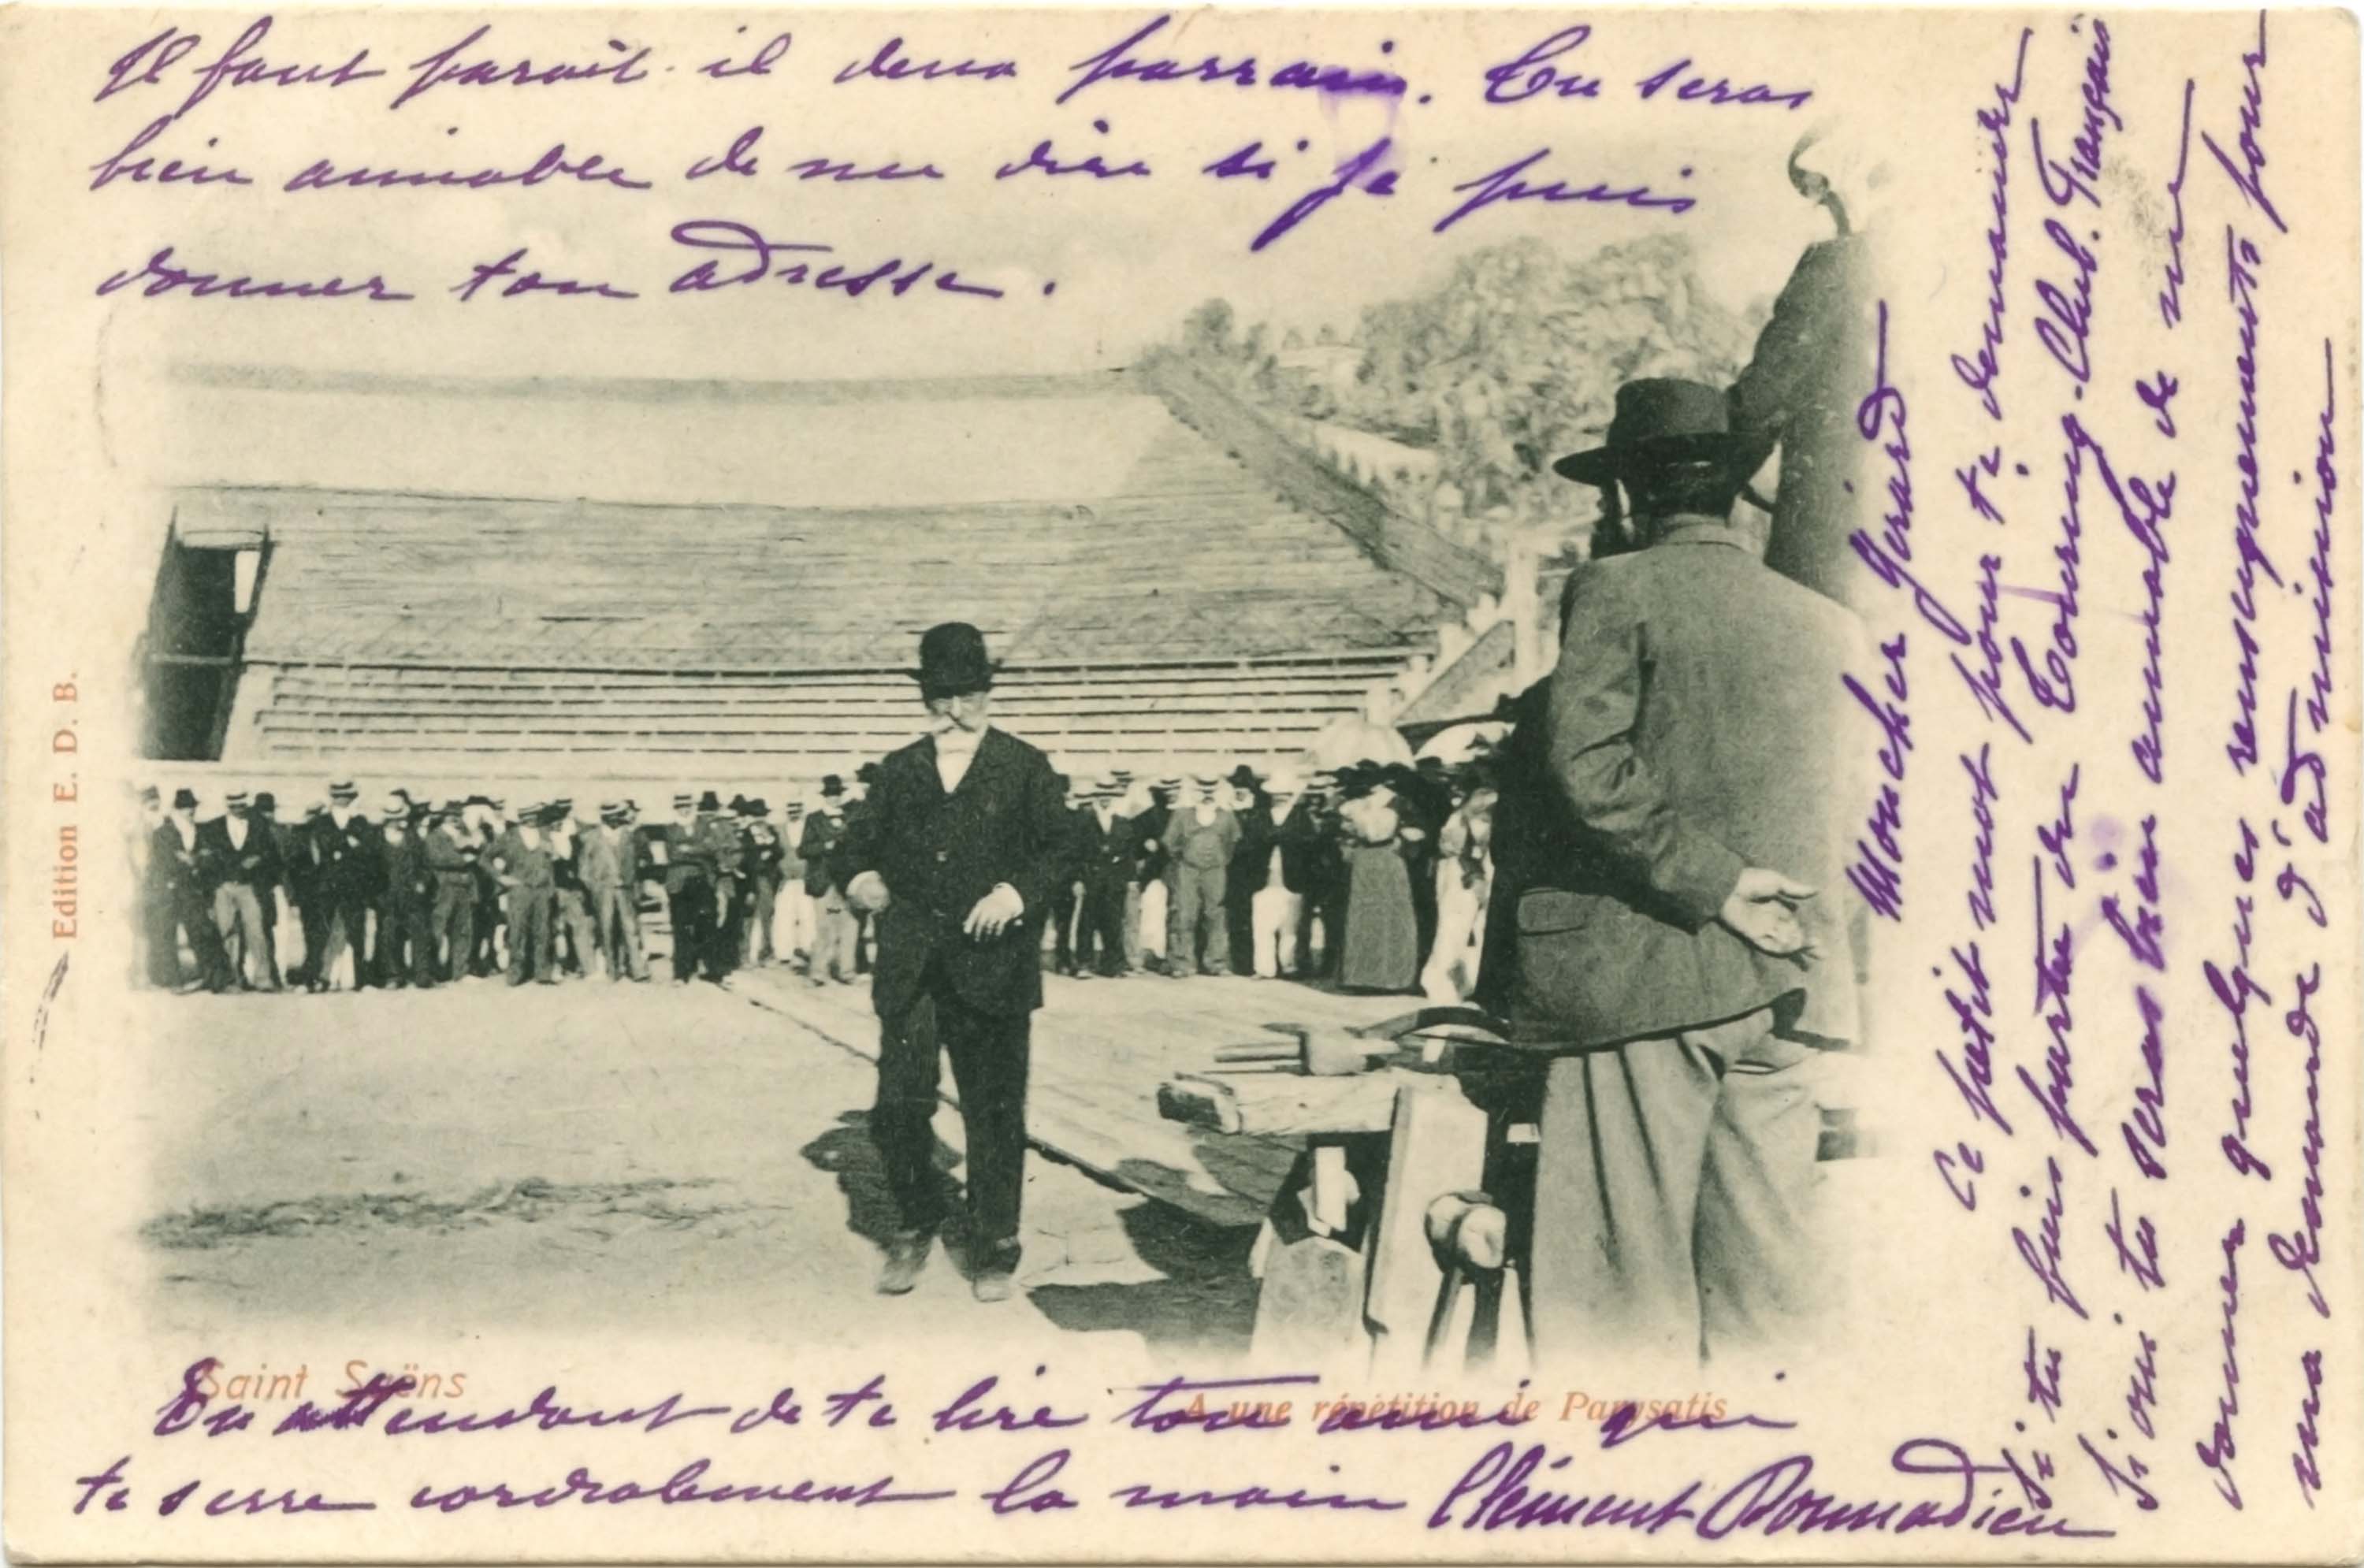 Mon cher Gérard
Ce petit mot pour te demander
si tu fais partie du Touring-Club. Français
Si oui tu seras bien aimable de me
donner quelques renseignements pour
ma demande d'admission
Il faut parait-il deux parrains. Tu seras
bien aimable de me dire si je puis
donner ton adresse.
En attendant de te lire ton ami qui
te serre cordialement la main Clément Bonnadieu
Saint Saëns
A une répétition de Parysatis
Edition E. D. B.